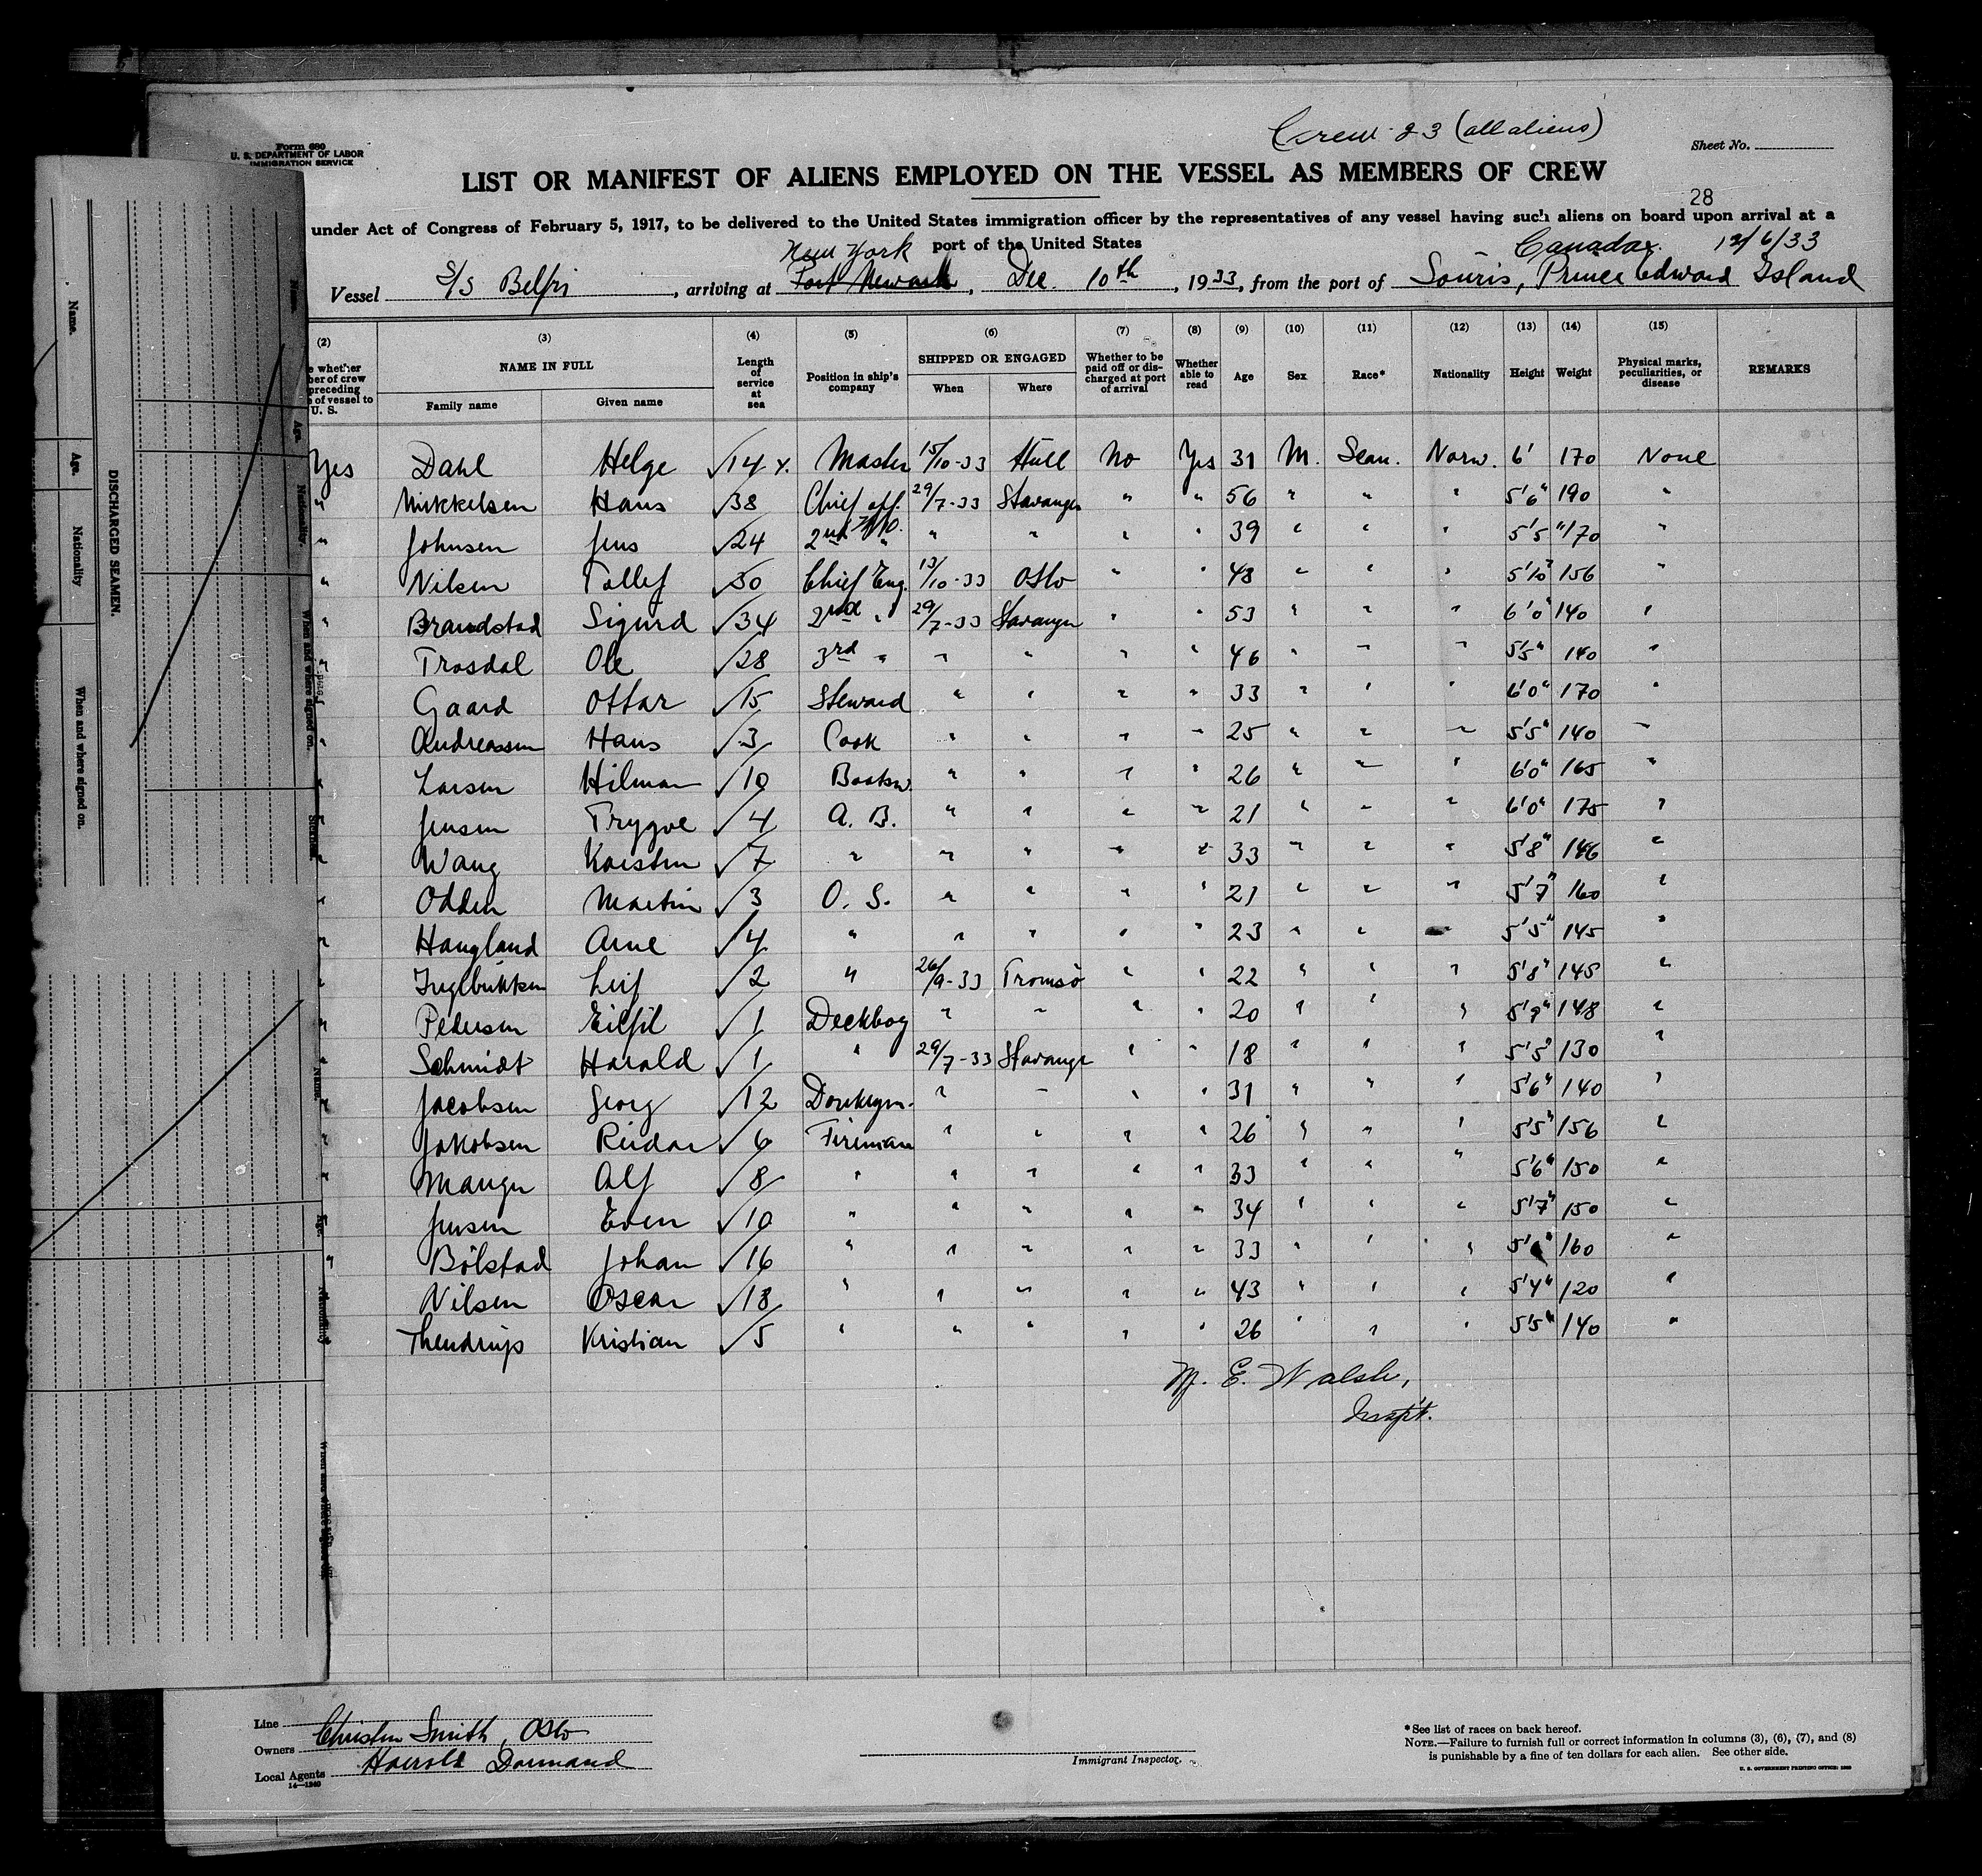 Crew 23 (all aliens)
Form 680
U. S. DEPARTMENT OF LABOR
IMMIGRATION SERVICE
Sheet No.
LIST OR MANIFEST OF ALIENS EMPLOYED ON THE VESSEL AS MEMBERS OF CREW
28
under Act of Congress of February 5, 1917, to be delivered to the United States immigration officer by the representatives of any vessel having such aliens on board upon arrival at a
port of the United States
New York Canada 12/6/33
Vessel S/S Belpis, arriving at Port Newark, Dec. 10th, 1933, from the port of Souris, Prince Edward Island
(2) (3) (4) (5) (6) (7) (8) (9) (10) (11) (12) (13) (14) (15)
NAME IN FULL Length of service at sea Position in ship's company SHIPPED OR ENGAGED Whether to be paid off or discharged at port of arrival Whether able to read Age Sex Race* Nationality Height Weight Physical marks, peculiarities, or disease REMARKS
Family name Given name When Where
Yes Dahl Helge √14 y. Master 15/10-33 Hull No Yes 31 M. Scan. Norw. 6' 170 None
" Mikkelsen Hans √38 Chief off. 29/7-33 Stavanger " " 56 " " " 5'6" 190 "
" Johnsen Jens √24 2nd " " " " " 39 " " " 5'5" 170 "
" Nilsen Tollef √30 Chief Eng. 13/10-33 Oslo " " 48 " " " 5'10" 156 "
" Brandstad Sigurd √34 2nd " 29/7-33 Stavanger " " 53 " " " 6'0" 140 "
" Trosdal Ole √28 3rd " " " " " 46 " " " 5'5" 140 "
" Gaard Ottar √15 Steward " " " " 33 " " " 6'0" 170 "
" Andreassen Hans √3 Cook " " " " 25 " " " 5'5" 140 "
" Larsen Hilman √10 Boatsw. " " " " 26 " " " 6'0" 165 "
" Jensen Trygve √4 A. B. " " " " 21 " " " 6'0" 175 "
" Wang Karsten √7 " " " " " 33 " " " 5'8" 146 "
" Odden Martin √3 O. S. " " " " 21 " " " 5'7" 160 "
" Haugland Arne √4 " " " " " 23 " " 5'5" 145 "
" Leif √2 " 26/9-33 Tromsö " " 22 " " " 5'8" 145 "
" Pedersen √1 Deckboy " " " " 20 " " " 5'9" 148 "
" Schmidt Harald √1 " 29/7-33 Stavanger " " 18 " " " 5'5" 130 "
" Jacobsen Georg √12 Donkeym. " " " " 31 " " " 5'6" 140 "
" Jakobsen Reidar √6 Fireman " " " " 26 " " " 5'5" 156 "
" Manger Alf √8 " " " " " 33 " " " 5'6" 150 "
" Jensen Even √10 " " " " " 34 " " " 5'7" 150 "
" Bølstad Johan √16 " " " " " 33 " " " 160 "
" Nilsen Oscar √18 " " " " " 43 " " " 5'4" 120 "
" Thendrup Kristian √5 " " " " " 26 " " " 5'5" 140 "
M. E. Walsh,
Insp't.
Line
Owners Christen Smith, Oslo
Local Agents Harrold Dormand
14—1240
Immigrant Inspector.
* See list of races on back hereof.
NOTE.—Failure to furnish full or correct information in columns (3), (6), (7), and (8)
is punishable by a fine of ten dollars for each alien. See other side.
U. S. GOVERNMENT PRINTING OFFICE: 1933
DISCHARGED SEAMEN.
Name.
Age.
Nationality
When and where signed on.